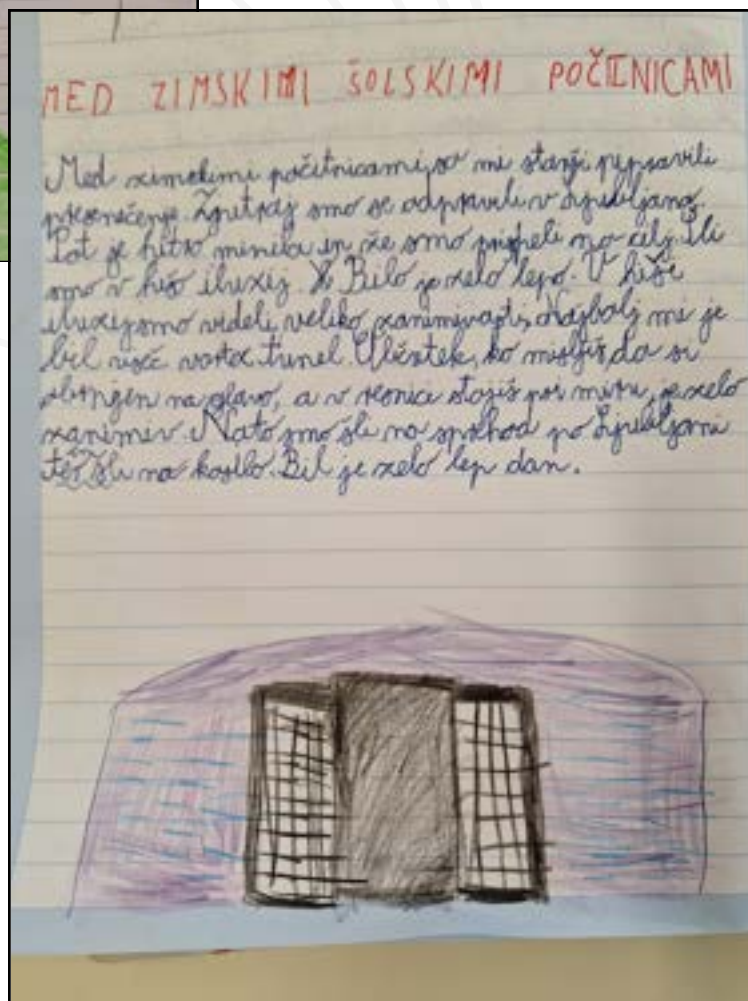 MED ZIMSKIMI ŠOLSKIMI POČITNICAMI
Med zimskimi počitnicami so mi starši pripravili
presenečenje. Zjutraj smo se odpravili v Ljubljano.
Pot je hitro minila in že smo prispeli na cilj. Šli
smo v hišo iluzij. Bilo je zelo lepo. V hiši
iluzij smo videli veliko zanimivosti. Najbolj mi je
bil všeč vortex tunel. Občutek, ko misliš, da si
obrnjen na glavo, a v resnici stojiš pri miru, je zelo
zanimiv. Nato smo šli na sprehod po Ljubljani
ter šli na kosilo. Bil je zelo lep dan.